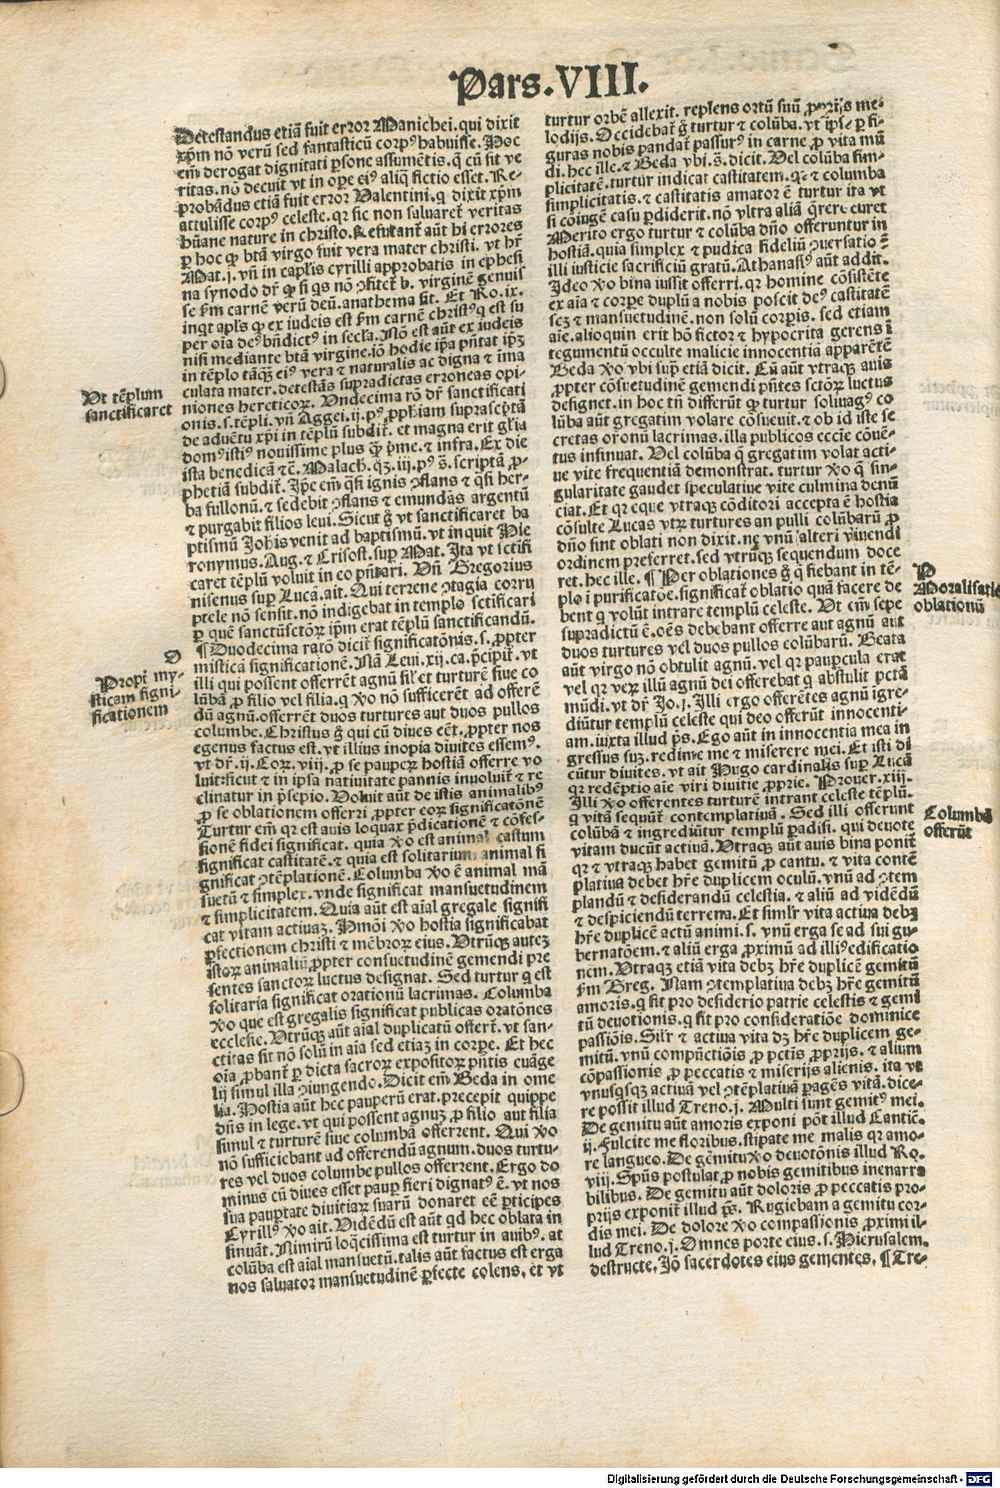 Pars.VIII.
Detestandus etiã fuit error Manichei.qui dixit
xp̃m nõ verũ sed fantasticũ corpꝰ habuisse. Hoc
em̃ derogat dignitati psone assumẽtis.q̃ cũ sit ve
ritas.nõ decuit vt in oꝑe eiꝰ aliq̃ fictio esset. Re-
probãdus etiã fuit error Valentini.q dixit xp̃m
attulisse corpꝰ celeste.qr sic non saluaret̃ veritas
hũane nature in christo. Refutant̃ aũt hi errores
ꝑ hoc ꝙ btã virgo fuit vera mater christi. vt hr̃
Mat.j. vñ in caplis cyrilli approbatis in ephesi
na synodo dr̃ ꝙ si qs nõ ꝯfitet̃ b. virginẽ genuis
se ẜm carnẽ verũ deũ.anathema sit. Et Ro.ix.
inqt apls ꝙ ex iudeis est ẜm carnẽ christꝰ q est su
per oĩa deꝰ bñdictꝰ in secla. Nõ est aũt ex iudeis
nisi mediante btã virgine.iõ hodie ip̃a pñtat ip̃ꝫ
in tẽplo tãqꝫ eiꝰ vera ⁊ naturalis ac digna ⁊ ĩma
culata mater.detestãs supradictas erroneas opi-
niones hereticoꝝ. Vndecima rõ dr̃ sanctificati
onis.s.tẽpli.vñ Aggei.ij.pꝰ ꝓphiam suprascptã
de aduẽtu xp̃i in tẽplũ subdit̃. et magna erit glĩa
domꝰ istiꝰ nouissime plus q̃ pme.⁊ infra. Ex die
ista benedicã ⁊c̃. Malach.qꝫ.iij.pꝰ s̃.scriptã ꝓ-
phetiã subdit̃. Ip̃e em̃ q̃si ignis ꝯflans ⁊ q̃si her-
ba fullonũ.⁊ sedebit ꝯflans ⁊ emundãs argentũ
⁊ purgabit filios leui. Sicut g̃ vt sanctificaret ba
ptismũ Johis venit ad baptismũ.vt inquit Hie
ronymus. Aug.⁊ Crisost.sup Mat. Ita vt sctifi
caret tẽplũ voluit in eo pñtari. Vñ Gregorius
nisenus sup Lucã.ait. Qui terrene ꝯtagia corru
ptele nõ sensit.nõ indigebat in templo sctificari
ꝑ quẽ sanctũsctõꝝ ip̃m erat tẽplũ sanctificandũ.
¶ Duodecima ratõ dicit̃ significatõnis.s.ꝓpter
misticã significationẽ. Nã Leui.xij.ca.pcipit̃.vt
illi qui possent offerrẽt agnũ sil̃ et turturẽ siue co
lũbã ꝓ filio vel filia.q xo nõ sufficerẽt ad offerẽ
dũ agnũ.offerrẽt duos turtures aut duos pullos
columbe. Christus g̃ qui cũ diues eẽt.ꝓpter nos
egenus factus est.vt illius inopia diuites essemꝰ.
vt dr̃.ij.Coꝝ.viij.ꝓ se pauperꝝ hostiã offerre vo
luit.sicut ⁊ in ipsa natiuitate pannis inuoluit̃ ⁊ re
clinatur in p̃sepio. Voluit aũt de istis animalibꝰ
ꝓ se oblationem offerri ꝓpter eoꝝ significatõnẽ
Turtur em̃ qr est auis loquax p̃dicationẽ ⁊ cõfes-
sionẽ fidei significat. quia xo est animal castum
significat castitatẽ.⁊ quia est solitarium animal si
gnificat ꝯtẽplationẽ. Columba xo ẽ animal mã
suetũ ⁊ simplex.vnde significat mansuetudinem
⁊ simplicitatem. Quia aũt est aĩal gregale signifi
cat vitam actiuaꝫ. Hmõi xo hostia significabat
ꝑfectionem christi ⁊ mẽbroꝝ eius. Vtrũqꝫ auteꝫ
istoꝝ animaliũ ꝓpter consuetudinẽ gemendi pre
sentes sanctoꝝ luctus designat. Sed turtur q est
solitaria significat orationũ lacrimas. Columba
xo que est gregalis significat publicas oratõnes
ecclesie. Vtrũqꝫ aũt aĩal duplicatũ offert̃.vt san-
ctitas sit nõ solũ in aĩa sed etiaꝫ in corpe. Et hec
oĩa ꝓbant̃ ꝑ dicta sacroꝝ expositoꝝ pñtis euãge
lij simul illa ꝯiungendo. Dicit em̃ Beda in ome
lia. Hostia aũt hec pauperũ erat. precepit quippe
dñs in lege.vt qui possent agnuꝫ ꝓ filio aut filia
simul ⁊ turturẽ siue columbã offerrent. Qui xo
nõ sufficiebant ad offerendũ agnum.duos turtu-
res vel duos columbe pullos offerrent. Ergo do
minus cũ diues esset paup fieri dignatꝰ ẽ.vt nos
sua paupertate diuitiaꝝ suarũ donaret eẽ ꝑticipes
Cyrillꝰ xo ait. Vidẽdũ est aũt qd hec oblata in
sinuãt. Nimirũ loq̃cissima est turtur in auibꝰ. at
colũba est aĩal mansuetũ.talis aũt factus est erga
nos saluator mansuetudinẽ ꝑfecte colens. et vt
turtur orbẽ allexit. replens ortũ suũ ꝓprijs me-
lodijs. Occidebat̃ g̃ turtur ⁊ colũba. vt ip̃se ꝑ fi-
guras nobis pandat̃ passurꝰ in carne ꝓ vita mũ
di. hec ille.⁊ Beda vbi.s̃.dicit. Vel colũba sim-
plicitatẽ.turtur indicat castitatem.q̃ ⁊ columba
simplicitatis.⁊ castitatis amator ẽ turtur ita vt
si cõiugẽ casu ꝑdiderit.nõ vltra aliã q̃rere curet
Merito ergo turtur ⁊ colũba dño offeruntur in
hostiã.quia simplex ⁊ pudica fideliũ ꝯuersatio ẽ
illi iusticie sacrificiũ gratũ. Athanasiꝰ aũt addit.
Ideo xo bina iussit offerri.qr homine cõsistẽte
ex aĩa ⁊ corpe duplũ a nobis poscit deꝰ castitatẽ
scꝫ ⁊ mansuetudinẽ.non solũ corpis. sed etiam
aĩe.alioquin erit hõ fictor ⁊ hypocrita gerens ĩ
tegumentũ occulte malicie innocentiã apparẽtẽ
Beda xo vbi sup̃ etiã dicit. Cũ aũt vtraqꝫ auis
ꝓpter cõsuetudinẽ gemendi pñtes sctõꝝ luctus
designet.in hoc tñ differũt ꝙ turtur soliuagꝰ co
lũba aũt gregatim volare cõsueuit.⁊ ob id iste se
cretas orõnũ lacrimas.illa publicos eccĩe cõuẽ-
tus insinuat. Vel colũba q̃ gregatim volat acti-
ue vite frequentiã demonstrat. turtur xo q̃ sin-
gularitate gaudet speculatiue vite culmina denũ
ciat. Et qr eque vtraqꝫ cõditori accepta ẽ hostia
cõsulte Lucas vtꝝ turtures an pulli colũbarũ ꝓ
dño sint oblati non dixit.ne vnũ alteri viuendi
ordinem preferret.sed vtrũqꝫ sequendum doce
ret. hec ille. ¶ Per oblationes g̃ q̃ fiebant in tẽ-
plo ĩ purificatõe.significat̃ oblatio quã facere de
bent q volũt intrare templũ celeste. Vt em̃ sepe
supradictũ ẽ.oẽs debebant offerre aut agnũ aut
duos turtures vel duos pullos colũbarũ. Beata
aũt virgo nõ obtulit agnũ. vel qr paupcula erat
vel qr veꝝ illũ agnũ dei offerebat q abstulit pctã
mũdi.vt dr̃ Jo.j. Illi ergo offerẽtes agnũ igre-
diũtur templũ celeste qui deo offerũt innocenti-
am.iuxta illud ps̃. Ego aũt in innocentia mea in
gressus suꝫ.redime me ⁊ miserere mei. Et isti di
cũtur diuites. vt ait Hugo cardinalis sup Lucã
qr redẽptio aĩe viri diuitie ꝓprie. Prouer.xiij.
Illi xo offerentes turturẽ intrant celeste tẽplũ.
q̃ vitã sequũt̃ contemplatiuã. Sed illi offerunt
colũbã ⁊ ingrediũtur templũ ꝑadisi. qui deuote
vitam ducũt actiuã. Vtraqꝫ aũt auis bina ponit̃
qr ⁊ vtraqꝫ habet gemitũ ꝓ cantu.⁊ vita contẽ
platiua debet hr̃e duplicem oculũ.vnũ ad ꝯtem
plandũ ⁊ desiderandũ celestia.⁊ aliũ ad vidẽdũ
⁊ despiciendũ terrena. Et similr̃ vita actiua debꝫ
hr̃e duplicẽ actũ animi.s. vnũ erga se ad sui gu-
bernatõem.⁊ aliũ erga ꝓximũ ad illiꝰ edificatio
nem. Vtraqꝫ etiã vita debꝫ hr̃e duplicẽ gemitũ
ẜm Greg. Nam ꝯtemplatiua debꝫ hr̃e gemitũ
amoris.q̃ fit pro desiderio patrie celestis ⁊ gemi
tũ deuotionis.q̃ fit pro consideratiõe dominice
passiõis. Silr̃ ⁊ actiua vita dꝫ hr̃e duplicem ge-
mitũ.vnũ compũctiõis ꝓ pctĩs ꝓprijs.⁊ alium
cõpassionis ꝓ peccatis ⁊ miserijs alienis. ita vt
vnusqꝫqꝫ actiuã vel ꝯtẽplatiuã ꝑagẽs vitã.dice-
re possit illud Treno.j. Multi sunt gemitꝰ mei.
De gemitu aũt amoris exponi põt illud Cantic̃.
ij.Fulcite me floribus.stipate me malis qr amo-
re langueo. De gẽmitu xo deuotõnis illud Ro.
viij. Spũs postulat ꝓ nobis gemitibus inenarra
bilibus. De gemitu aũt doloris ꝓ peccatis pro-
prijs exponit̃ illud ps̃. Rugiebam a gemitu cor-
dis mei. De dolore xo compassionis ꝓximi il-
lud Treno.j. Omnes porte eius.s. Hierusalem.
destructe. Jõ sacerdotes eius gementes. ¶ Tre-
Vt tẽplum
sanctificaret
D
Propt̃ my-
sticam signi-
ficationem
P
Moralisatio
oblationũ
Columbã
offerũt
Digitalisierung gefördert durch die Deutsche Forschungsgemeinschaft - DFG